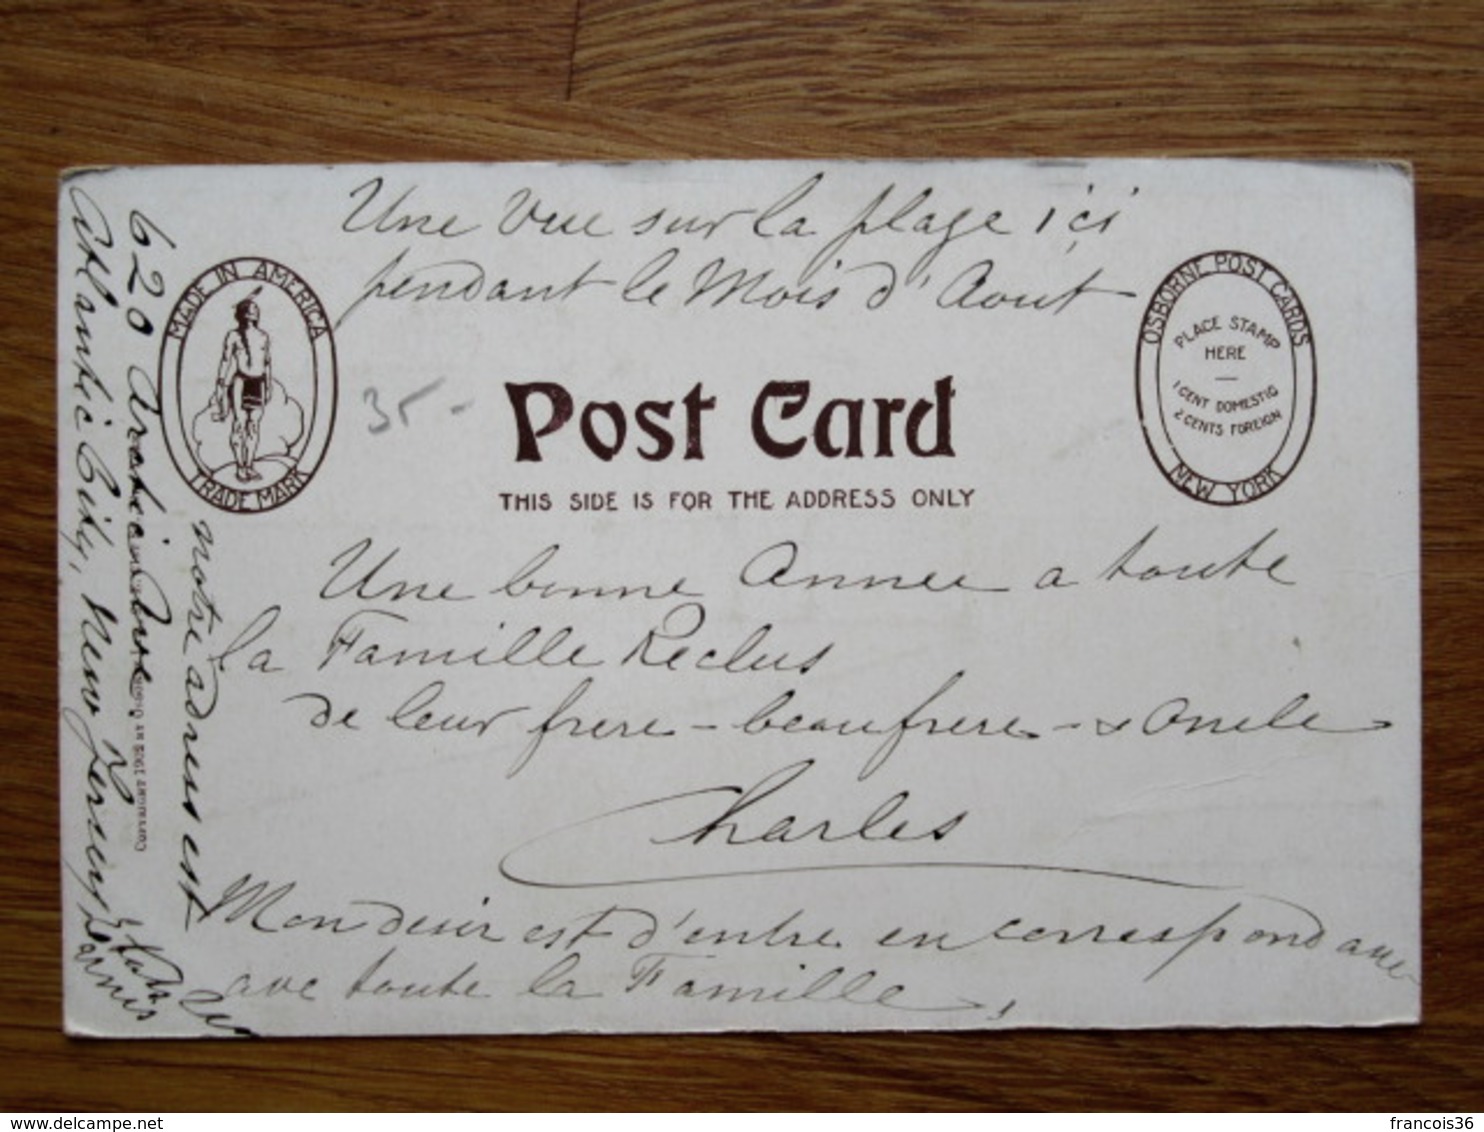 Une Vue sur la plage ici
pendant le Mois d'Aout
MADE IN AMERICA
TRADE MARK
35-
OSBORNE POST CARDS
PLACE STAMP
HERE
1 CENT DOMESTIC
2 CENTS FOREIGN
NEW YORK
Post Card
THIS SIDE IS FOR THE ADDRESS ONLY
Une bonne Annee a toute
la Famille Reclus
de leur frere - beaufrere - & Oncle
Charles
Mon desir est d'entre en correspondance
avec toute la Famille,
notre adresse est
620 Arctic Ave
Atlantic City, New Jersey
Etats Unis
COPYRIGHT 1905 BY
francois36